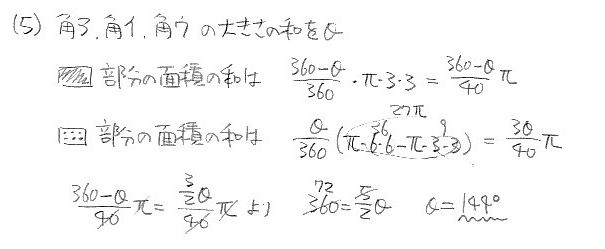 (5) 角ア、角イ、角ウ の大きさの和をθ
部分の面積の和は 360-θ/360・π・3・3 = 360-θ/40 π
27π
36 9
部分の面積の和は θ/360 (π・6・6-π・3・3) = 3θ/40 π
360-θ/40 π = 3/2 θ/40 π より 72 360 = 5/2 θ θ=144°